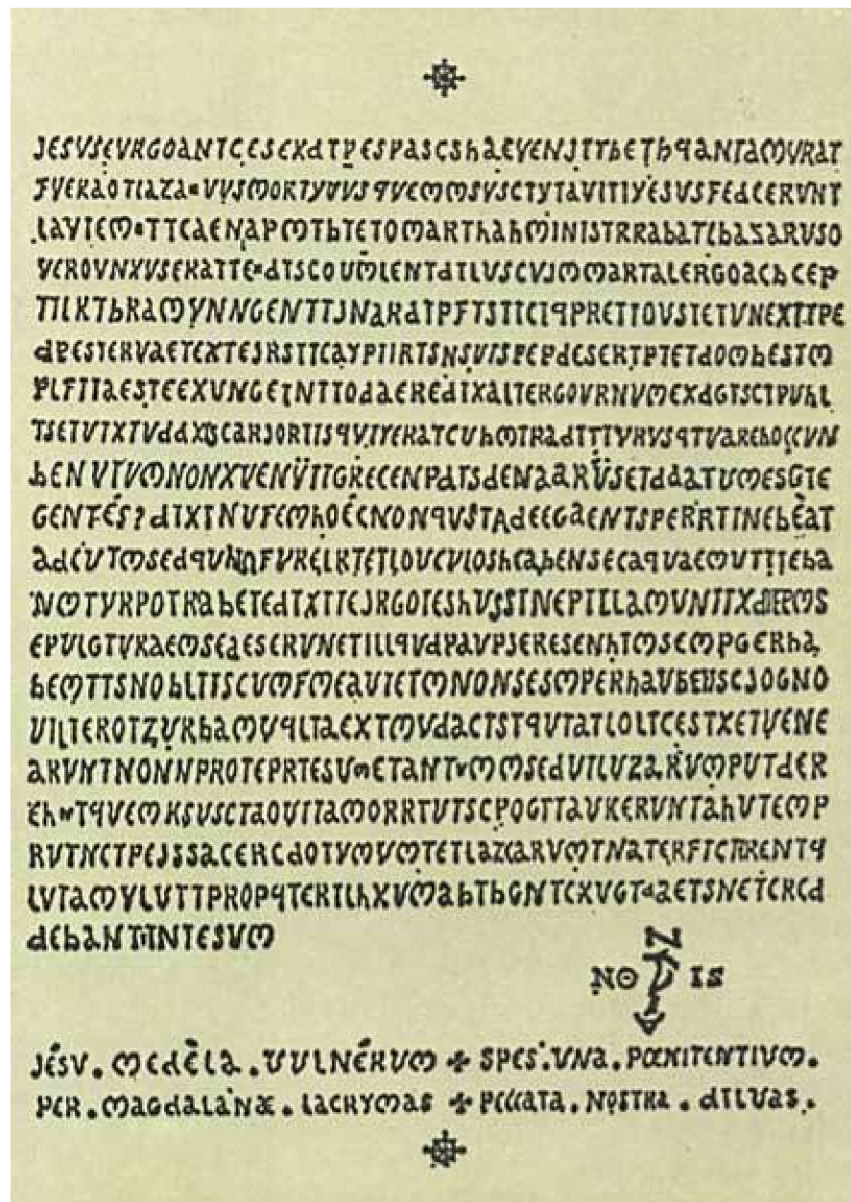 JESVSEVRGOANTCESEXdTPESPASCShaEVENJTTbEThqANTaMVRAT
FVERAOTIAZA=VVSMORTYVVSqVEMMSVSCTYTAVITIYESVSFEdCERVNT
LAVIEM=TTCAENAPMTbTETOMARThAhMINISTRRabaTLbazaRVSO
VEROVNXVSERATTE=dTSCOVMLENTdTLVSCVJMMARTALERGOACbCEP
TTLKTbRAMYNNGENTTJNARdTPFTSTTCIqPRETTOVSTETVNEXTTPE
dPESTERVAETEXTEJRSTTCAYPTIRTSNSVISPEPdESERTPTETdOMbESTM
PLFITAESTEEXVNGETNTTOdaEREdTXALTERGOVRNVMEXdGTSCTPVhL
TSETVTXTVddXGSCARJORTISqVIYERATCVhMTRadTTTVRVSqTVAREhOCCVN
bENVTVMNONXVENVTTGRECENPdTSdENaaRVSETdaaTVMESGTE
GENTES?dTXTNVFEMhOECNONqVSTAdEEGaENTSPERRTINEbEAT
adEVTMSEdqVNOFVRELRTETLOVCVLOShCabENSECAqVaEMVTTTEba
NMTVRPOTRAbETEdTXTTEJRGOTEShVSSTNEPTLLAMVNTTXdTEPMS
EPVLGTVRaEMSEdESERVNETILLqVdPAVPJERESENhTMSEMPGERha
bEMTTSNObLTTSCVMFMEAVTETMNONSESMPERhaVbENSCJOGNO
VILTEROTZVRbaMVqLTaEXTMVdaCTSTqVTaTLOLTCESTXETVENE
aRVNTNONNPROTEPRTESVMETANTVMMSEdVTLVZaRVMPVTdER
Eh=TqVEMKSVSCTaOVTTAMORRTVTSCPOGTTaVKERVNTahVTEMP
RVTNCTPEJSSACERCdOTVMVMTETLazCaRVMTNaTERFTCERENTq
LVTaMYLVTTPROPqTERTLhXVMabTbGNTCXVGTdaETSNETCRCd
dEbaNTTNTESVM
NO IS
JÉSV. MEdÈLa. VVLNÉRVM ✠ SPES. VNa. PŒNITENTIVM.
PER. MaGdaLaNÆ. LaCRYMAS ✠ PECCATA. NOSTRa. dILVas.